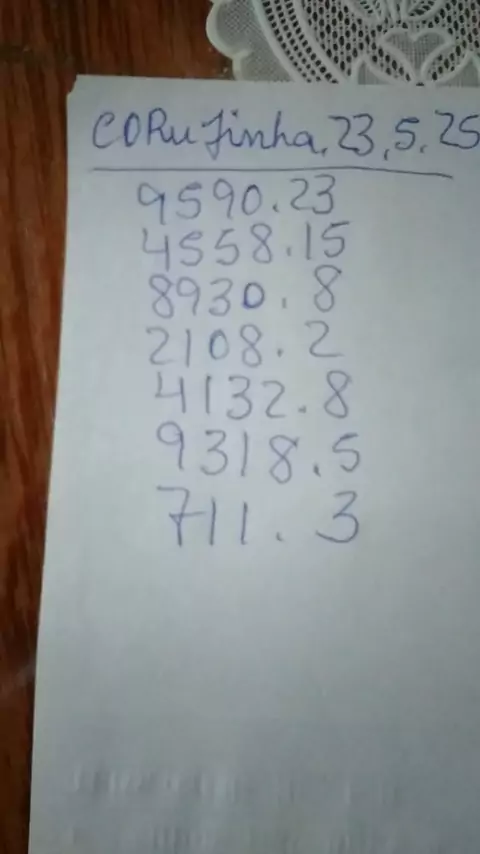 CORujinha.23.5.25
9590.23
4558.15
8930.8
2108.2
4132.8
9318.5
711.3